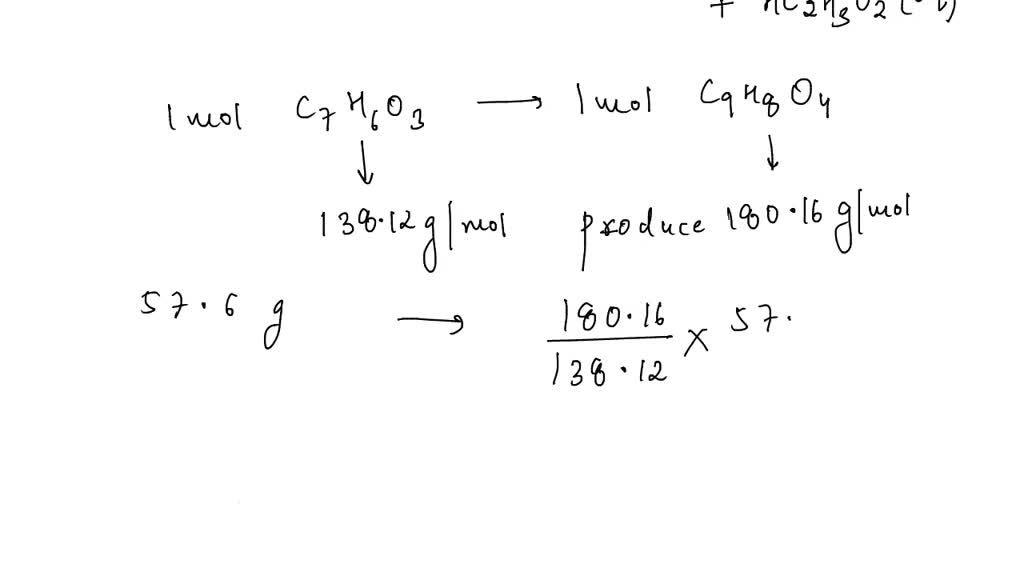 + HC2H3O2(
1 mol C7H6O3 → 1 mol C9H8O4
↓ ↓
138.12 g/mol produce 180.16 g/mol
57.6 g → 180.16 / 138.12 × 57.